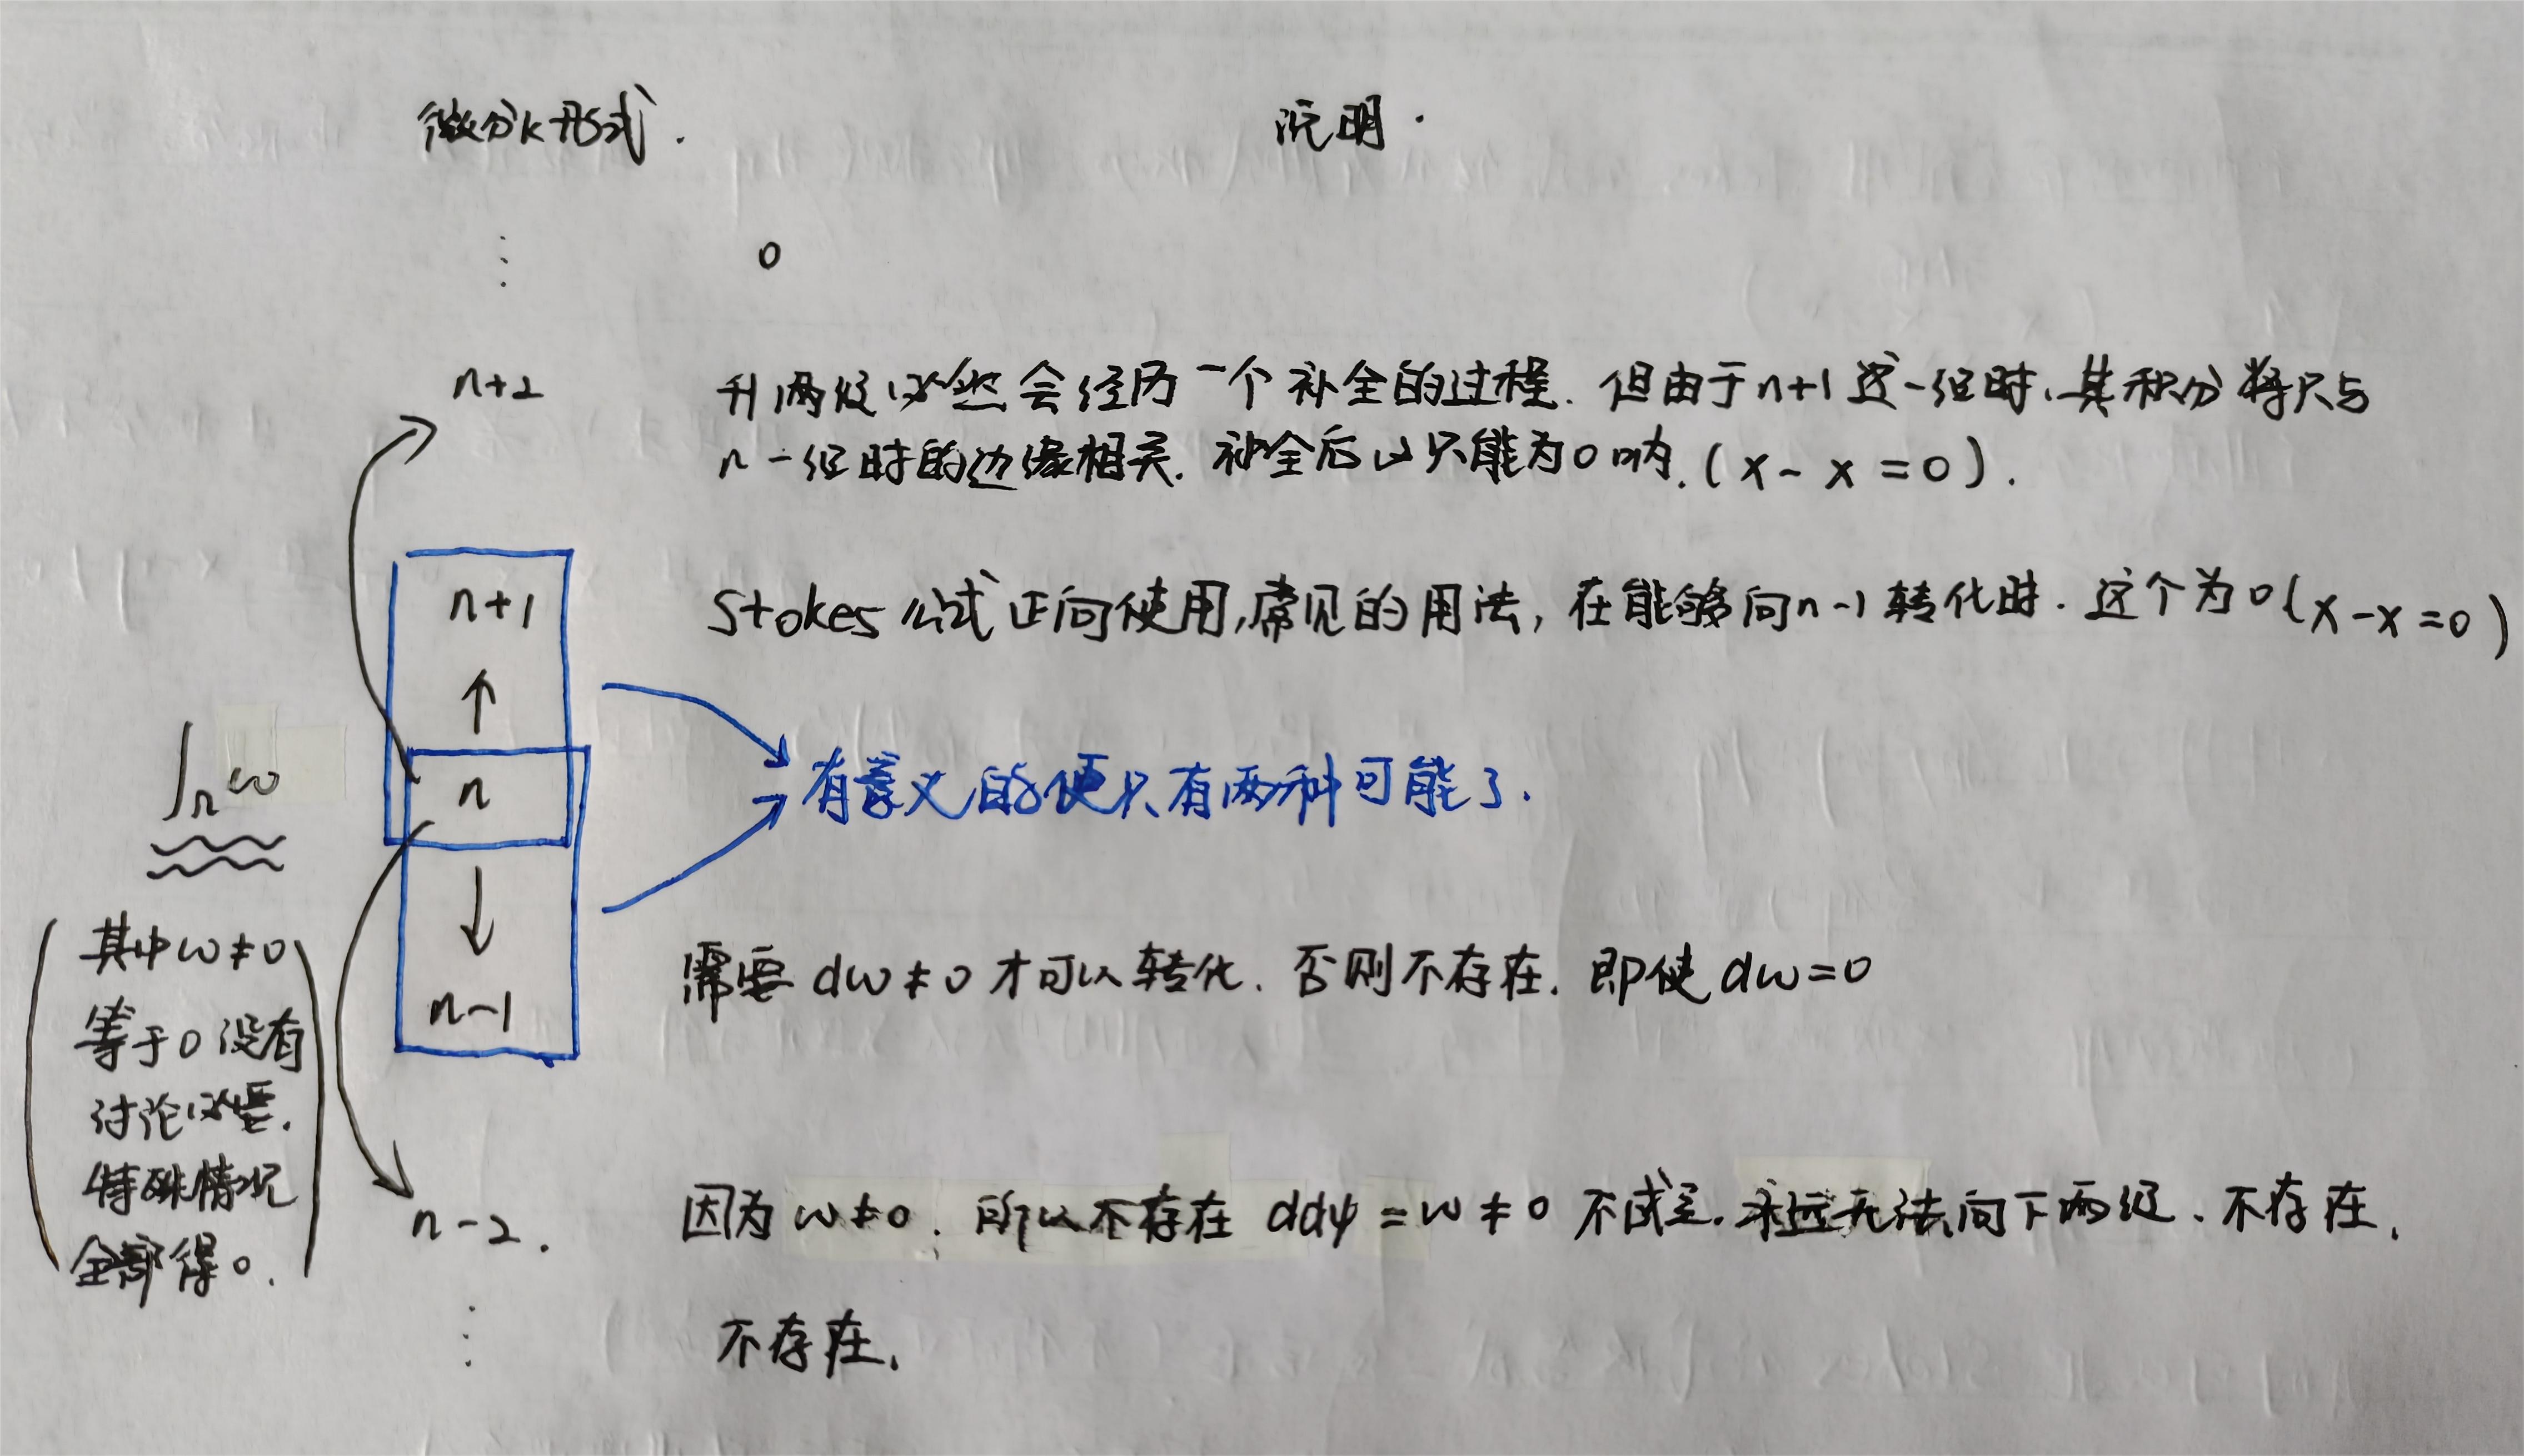 微分k形式. 说明.
⋮ 0
n+2 升两级必然会经历一个补全的过程. 但由于n+1这一级时, 其积分将只与
n一级时的边缘相关. 补全后ω只能为0呐. (x-x=0).
n+1 Stokes公式正向使用,常见的用法, 在能够向n-1转化时. 这个为0(x-x=0)
↑
∫ₙω n 有意义的便只有两种可能了.
↓
(其中ω≠0
等于0没有
讨论必要.
特殊情况
全部得0.)
n-1 需要 dω≠0 才可以转化. 否则不存在. 即使dω=0
n-2. 因为 ω≠0. 所以不存在 ddψ=ω≠0 不成立. 永远无法向下两级. 不存在.
⋮ 不存在.